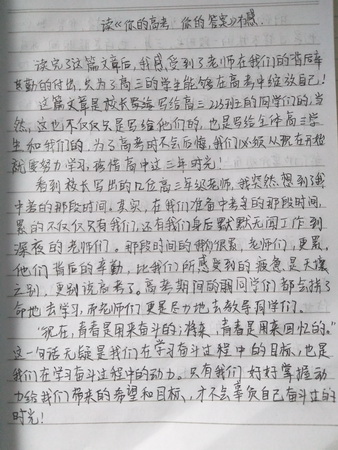 读《你的高考 你的答案》有感
读完了这篇文章后，我感受到了老师在我们的背后辛
勤的付出，只为了高三的学生能够在高考中绽放自己！
这篇文章是校长写给高三 班的同学们的，当
然，这也不仅仅只是写给他们的，也是写给全体高三学
生和我们的，为了高考时不会后悔，我们必须从现在开始
就要努力学习，珍惜高中这三年时光！
看到校长写出的 位高三年级老师，我突然想到了我
中考的那段时间。其实，在我们准备中考的那段时间，
累的不仅仅只有我们，还有我们身后默默无闻工作到
深夜的老师们。那段时间的我们很累，老师们更累。
他们背后的辛勤，比我们所感受到的疲惫是天壤
之别，更别说高考了。高考期间的 同学们都会拼了
命地去学习，而老师们更是尽力地去教导同学们。
“现在，青春是用来奋斗的；将来，青春是用来回忆的。”
这一句话无疑是我们在学习奋斗过程中的目标，也是
我们在学习奋斗过程中的动力。只有我们好好掌握动
力给我们带来的希望和目标，才不会辜负自己奋斗过的
时光！